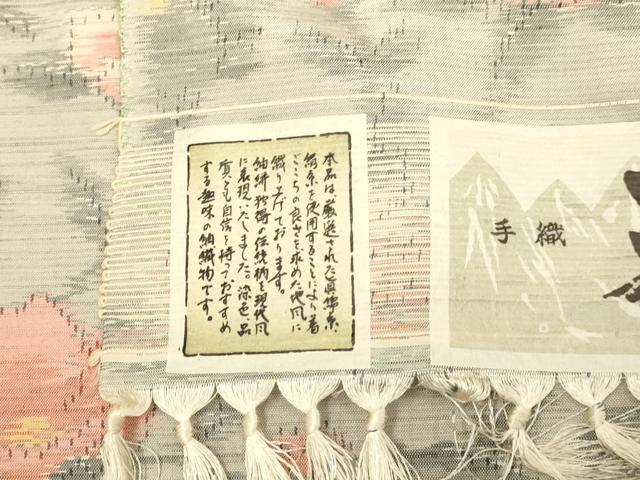 本品は、厳選された真綿糸、
絹糸を使用することにより着
ごこちの良さを求めた地風に
織り上げております。
紬絣独特の伝統柄を現代風
に表現いたしました。染色、品
質とも自信を持っておすすめ
する趣味の紬織物です。
手織